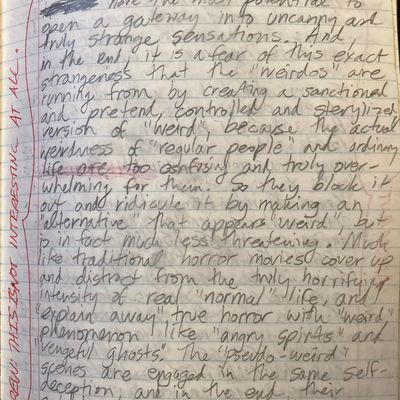 have the most potential to
open a gateway into uncanny and
truly strange sensations. And,
in the end, it is a fear of this exact
strangeness that the "weirdos" are
running from by creating a sanctioned
and pretend, controlled and sterylized
version of "weird", because the actual
weirdness of "regular people" and ordinary
life are too confusing and truly over-
whelming for them. So they block it
out and ridicule it by making an
"alternative" that appears "weird", but
is in fact much less threatening. Much
like traditional horror movies cover up
and distract from the truly horrifying
intensity of real "normal" life, and
"explain away" true horror with "weird"
phenomenon like "angry spirits" and
"vengeful ghosts." The "pseudo-weird"
scenes are engaged in the same self-
deception, and in the end, their
THIS IS NOT INTERESTING AT ALL.